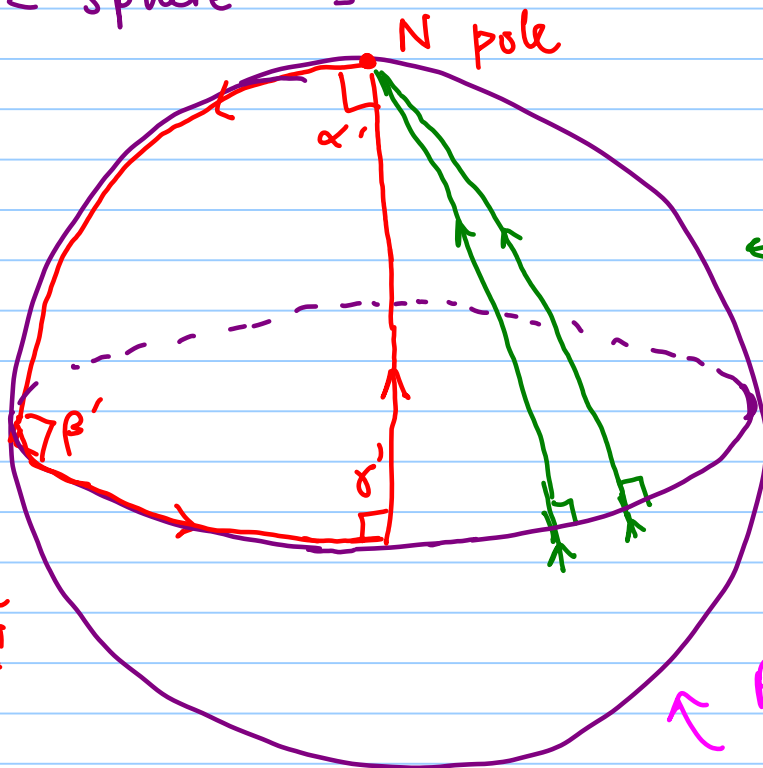 sphere
N pole
α'
β'
γ'